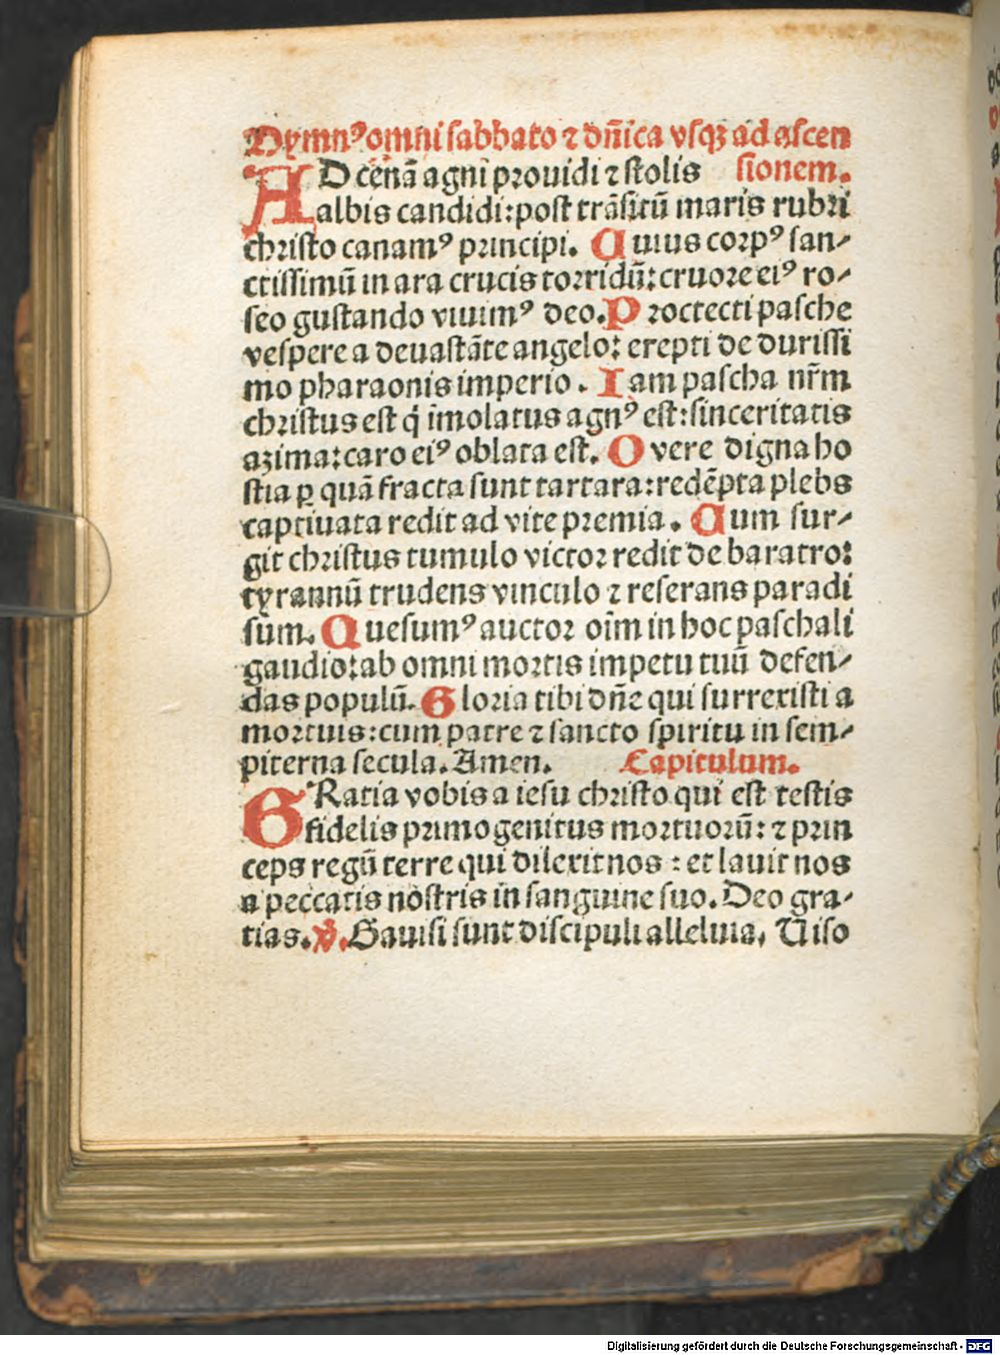 Hymnꝰ omni sabbato ⁊ dñica vsqꝫ ad ascen
AD cenā agni prouidi ⁊ stolis sionem.
albis candidi: post trāsitū maris rubri
christo canamꝰ principi. Cuius corpꝰ san-
ctissimū in ara crucis torridū: cruore eiꝰ ro-
seo gustando viuimꝰ deo. Proctecti pasche
vespere a deuastāte angelo: erepti de durissi
mo pharaonis imperio. Iam pascha nr̃m
christus est q̇ īmolatus agnꝰ est: sinceritatis
azima: caro eiꝰ oblata est. O vere digna ho
stia ꝑ quā fracta sunt tartara: redēpta plebs
captiuata redit ad vite premia. Cum sur-
git christus tumulo victor redit de baratro:
tyrannū trudens vinculo ⁊ reserans paradi
sum. Quesumꝰ auctor oīm in hoc paschali
gaudio: ab omni mortis impetu tuū defen-
das populū. Gloria tibi dñe qui surrexisti a
mortuis: cum patre ⁊ sancto spiritu in sem-
piterna secula. Amen. Capitulum.
GRatia vobis a iesu christo qui est testis
fidelis primogenitus mortuorū: ⁊ prin
ceps regū terre qui dilexit nos: et lauit nos
a peccatis nostris in sanguine suo. Deo gra-
tias. ℣. Gauisi sunt discipuli alleluia. Uiso
Digitalisierung gefördert durch die Deutsche Forschungsgemeinschaft - DFG